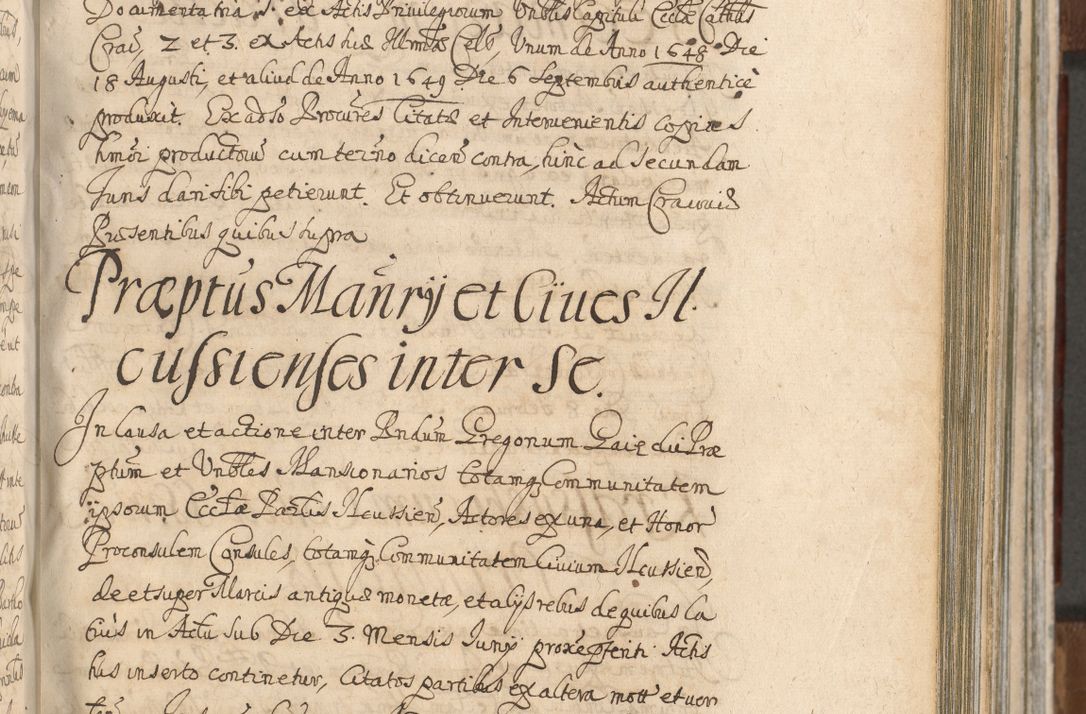 Documenta tria, 1. ex Actis Privilegiorum Vnblis Capituli Ecclæ Cathlis
Crac, 2 et 3. ex Actis his Illmæ Celsi, Vnum de Anno 1648 Die
18 Augusti, et aliud de Anno 1649 Die 6 Septembris authenticè
produxit. Ex adso Procures Citatæ et Intervenientis copias
hmõi productorũ cum termo dicen contra, hinc ad secundam
Juris dari sibi petierunt. Et obtinuerunt. Actum Cracoviæ
Præsentibus quibus supra
Præptus Manrÿ et Cives Il
cussienses inter se.
In Causa et actione inter Rndum Gregorium dui Præ
ptum et Vnbles Mansionarios totamq Communitatem
ipsorum Ecclæ Parlis Ilcussien, Actores ex una, et Honor
Proconsulem Consules, totamq Communitatem Civium Ilcussien,
de et super Marcis antiquæ monetæ, et alijs rebus de quibus la
tius in Actu sub Die 3. Mensis Junij proxe psenti Actis
his inserto continetur, Citatos partibus ex altera mott et ver